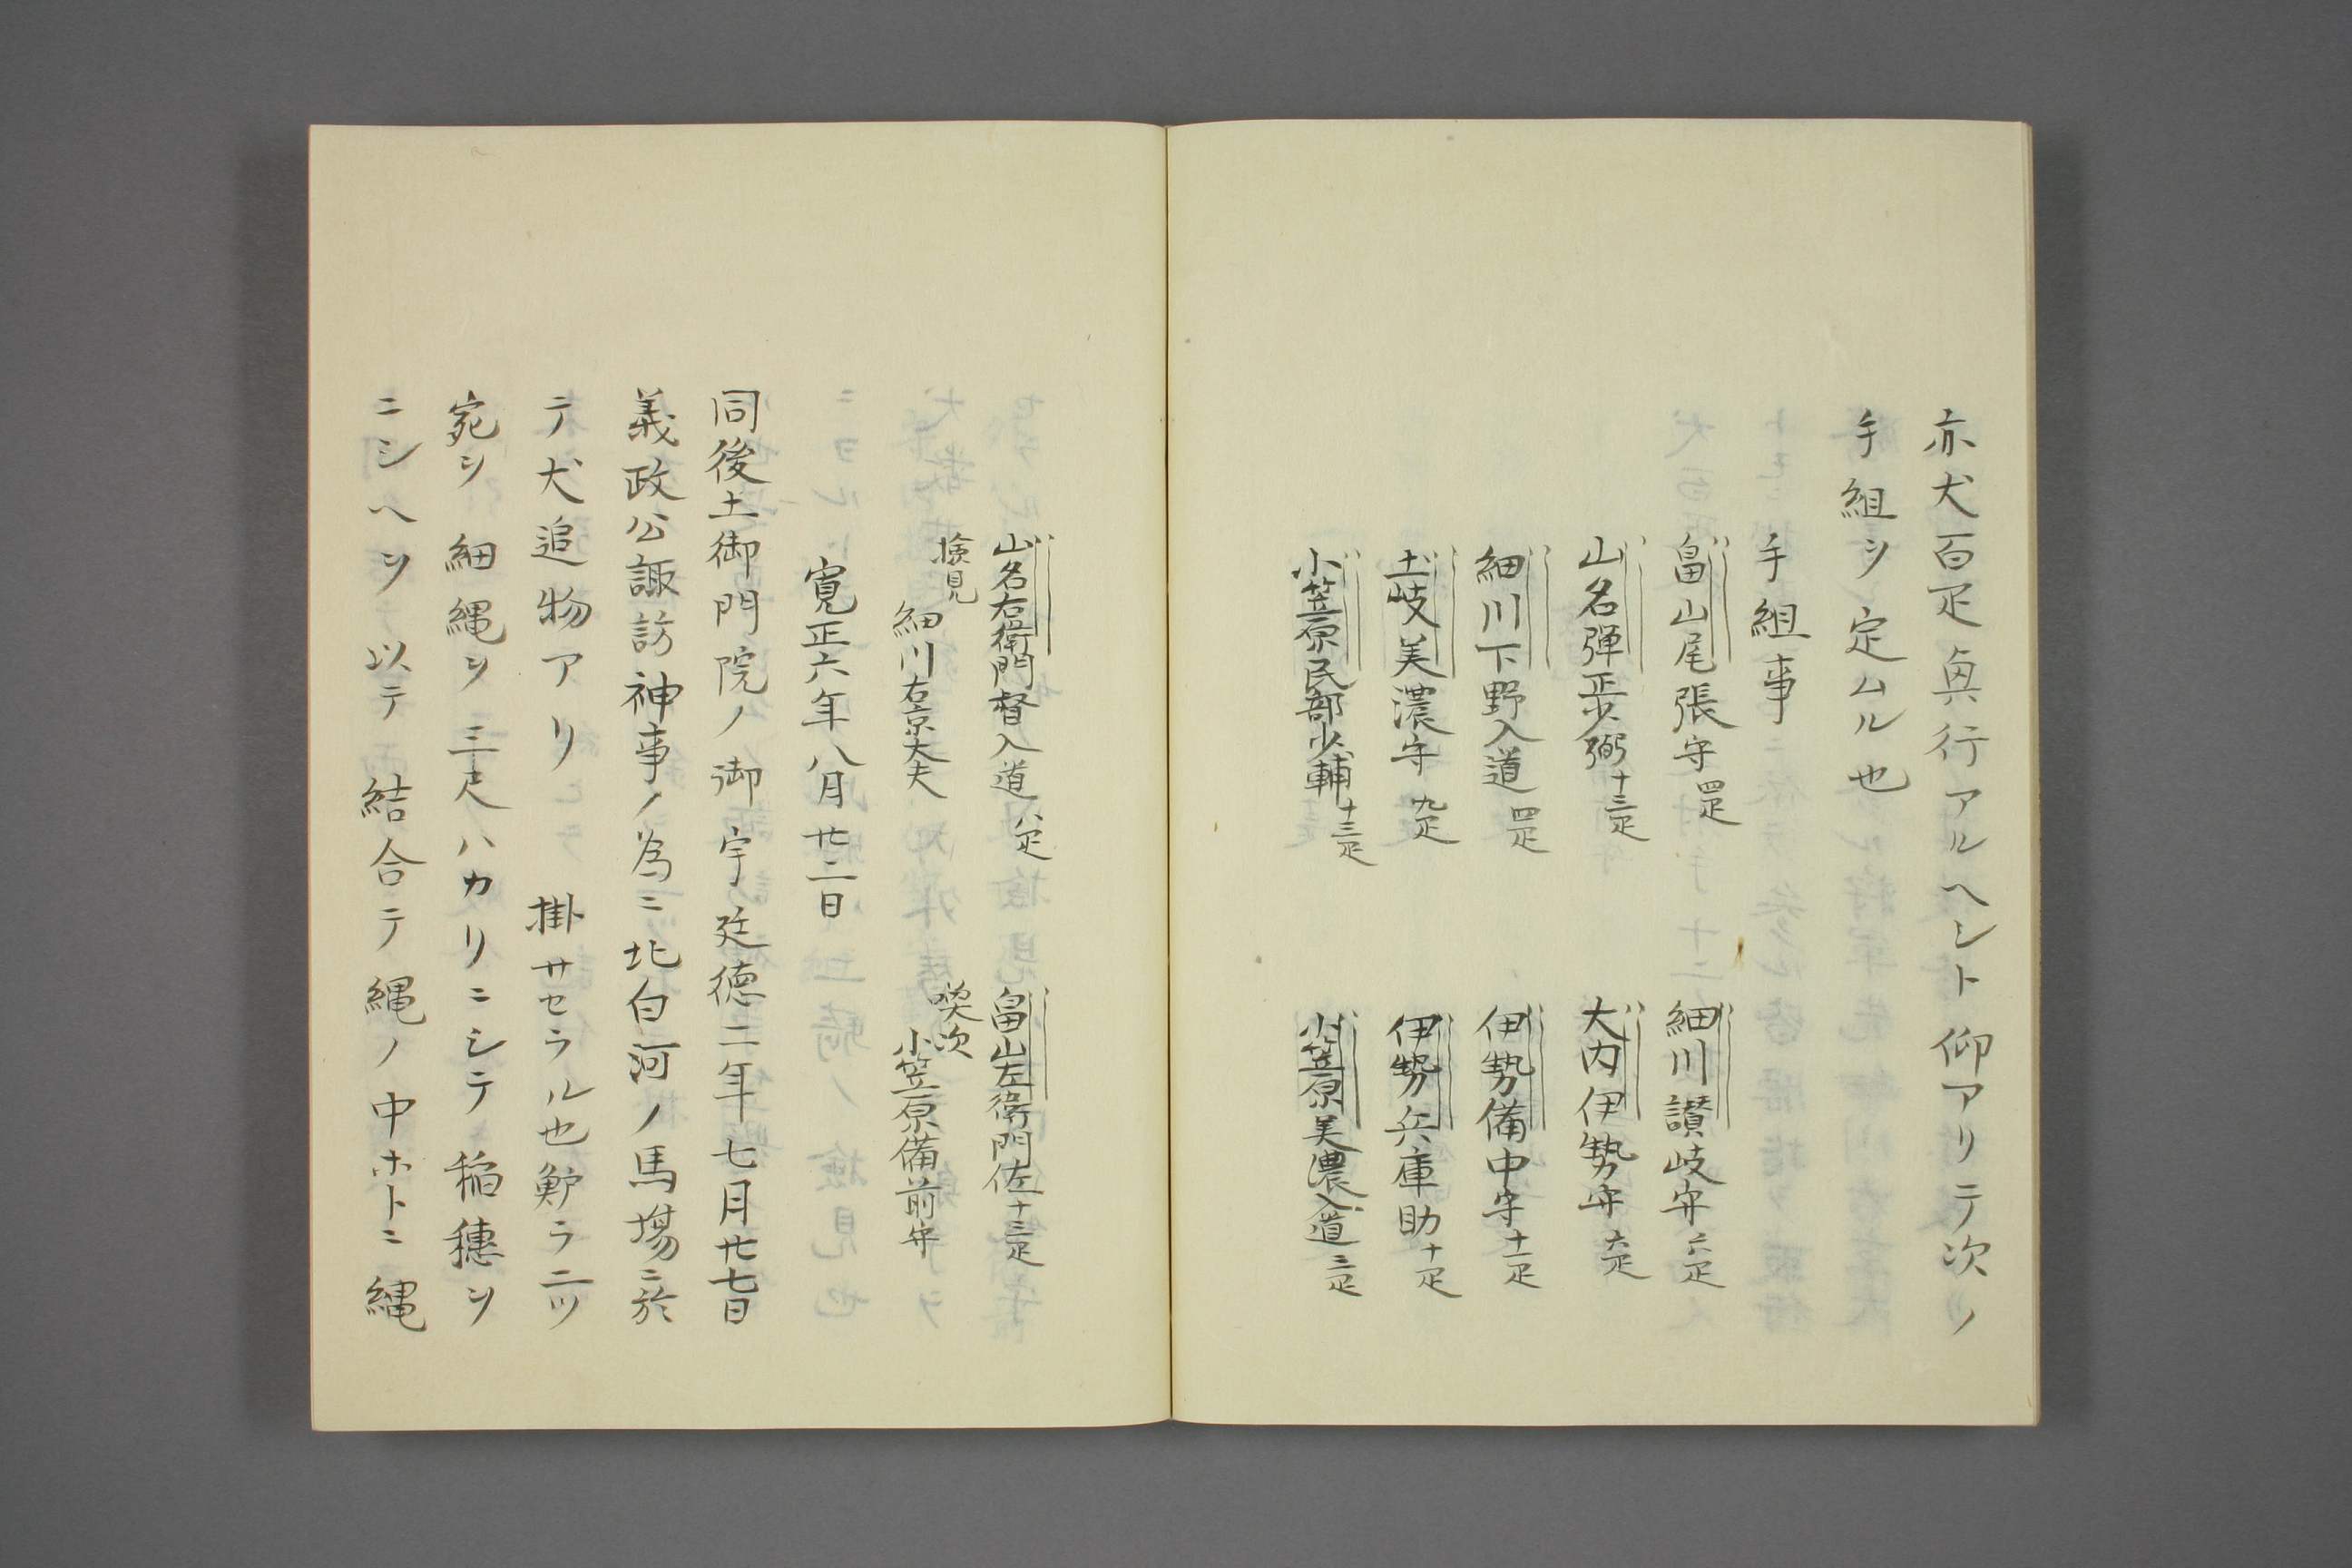 亦犬百疋真行アルヘシト仰アリテ次ノ
手組ヲ定ムル也
手組事
畠山尾張守 四疋
細川讃岐守 二疋
山名弾正少弼 十三疋
大内伊勢守 六疋
細川下野入道 四疋
伊勢備中守 十一疋
土岐美濃守 九疋
伊勢兵庫助 十疋
小笠原民部少輔 十三疋
小笠原美濃入道 三疋
山名右衛門督入道 八疋
畠山左衛門佐 十三疋
検見
喚次
細川右京大夫
小笠原備前守
寛正六年八月廿二日
同後土御門院ノ御宇延徳二年七月廿七日
義政公諏訪神事ノ為ニ北白河ノ馬場ニ於
テ犬追物アリ 掛サセラル也鮓ラ二ツ
宛ヲ細縄ヲ三尺ハカリニシテ稲穂ヲ
ニシヘヲ以テ結合テ縄ノ中ホトニ縄